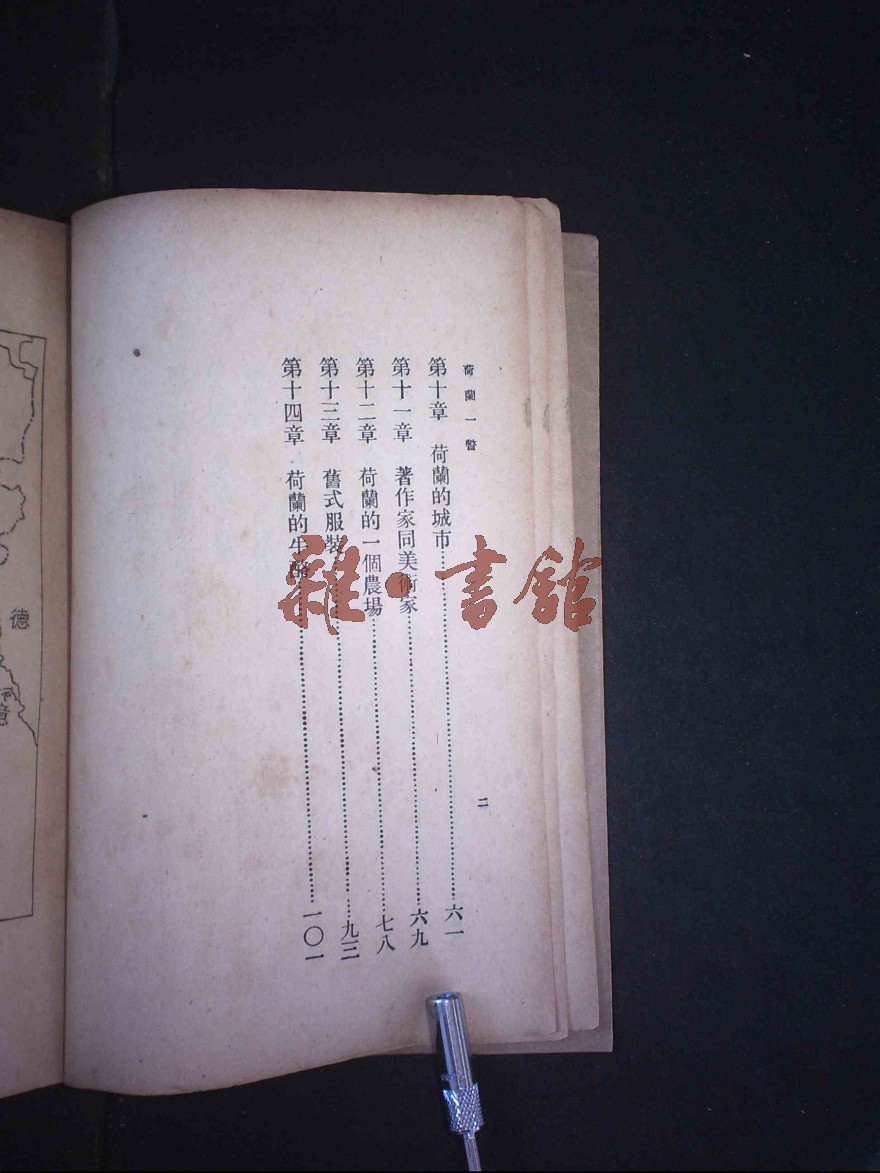 荷蘭一瞥
第十章 荷蘭的城市……六一
第十一章 著作家同美術家……六九
第十二章 荷蘭的一個農場……七八
第十三章 舊式服裝……九三
第十四章 荷蘭的牛酪……一〇一
二
德
雜·書館